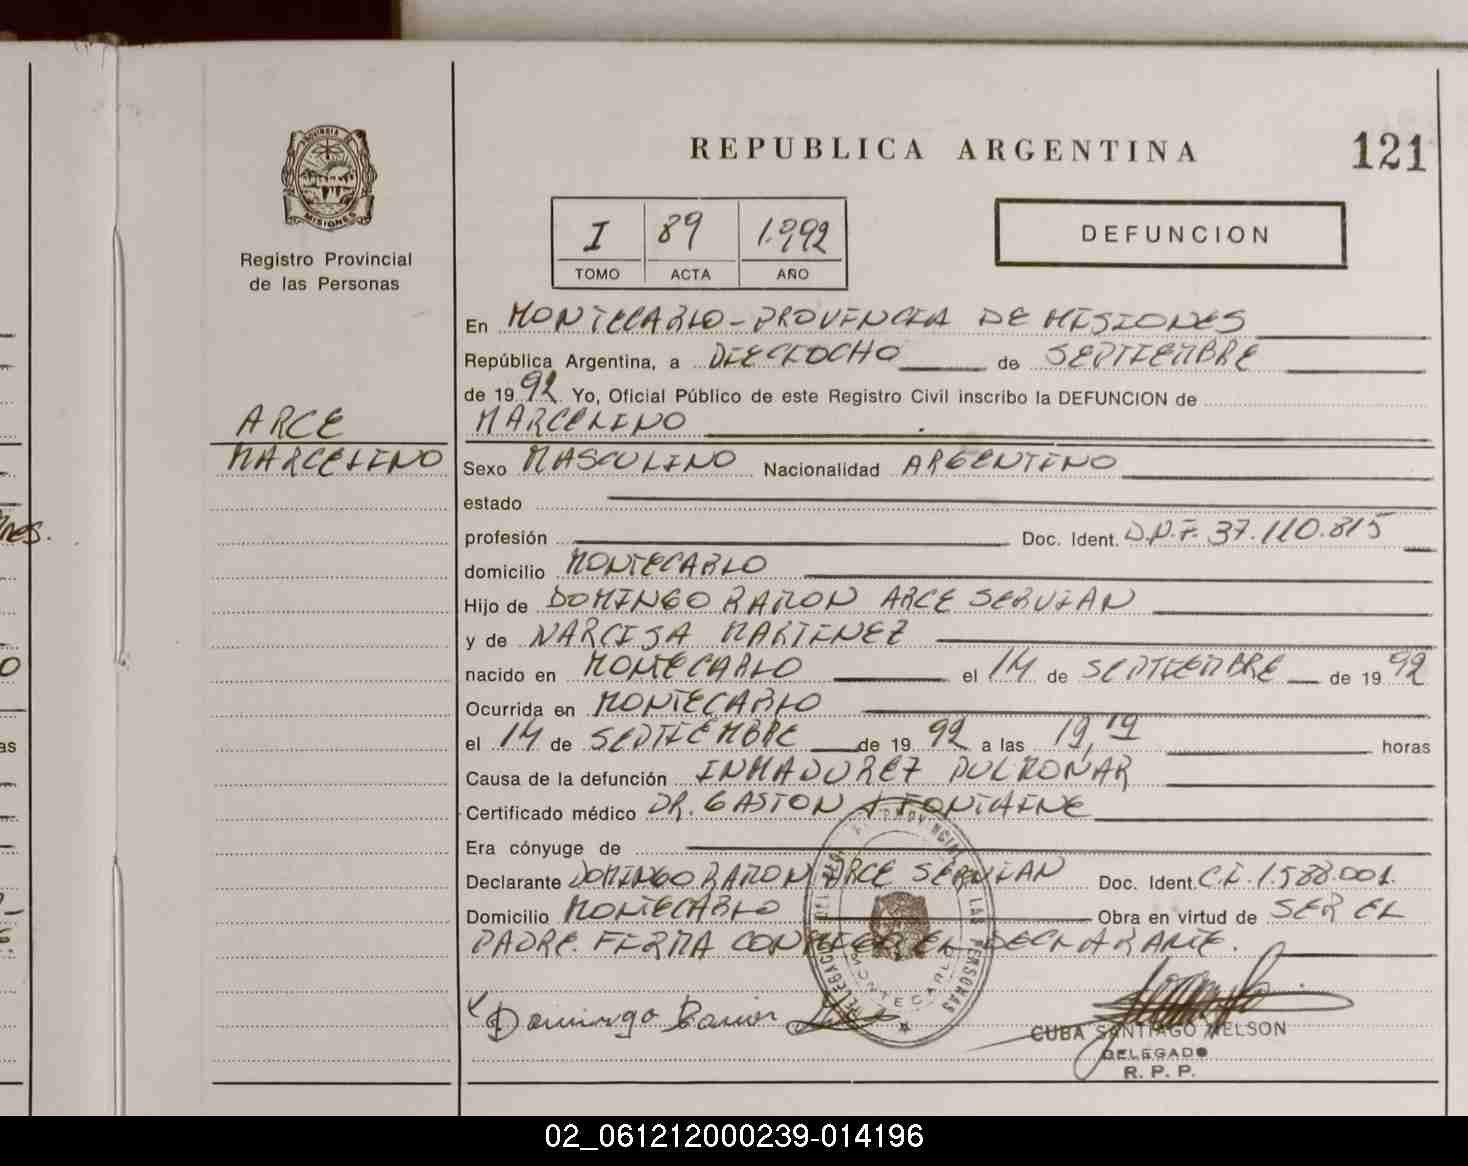 PROVINCIA DE
MISIONES
Registro Provincial
de las Personas
ARCE
MARCELINO
REPUBLICA ARGENTINA
121
I 89 1.992
TOMO ACTA AÑO
DEFUNCION
En MONTECARLO - PROVINCIA DE MISIONES
República Argentina, a DIECIOCHO de SEPTIEMBRE
de 1992 Yo, Oficial Público de este Registro Civil inscribo la DEFUNCION de
MARCELINO
Sexo MASCULINO Nacionalidad ARGENTINO
estado
profesión Doc. Ident. D.N.I. 37.110.815
domicilio MONTECARLO
Hijo de DOMINGO RAMON ARCE SERVIAN
y de NARCISA MARTINEZ
nacido en MONTECARLO el 14 de SEPTIEMBRE de 1992
Ocurrida en MONTECARLO
el 14 de SEPTIEMBRE de 1992 a las 19,19 horas
Causa de la defunción INMADUREZ PULMONAR
Certificado médico DR. GASTON FONTAINE
Era cónyuge de
Declarante DOMINGO RAMON ARCE SERVIAN Doc. Ident. C.I. 1.588.001.
Domicilio MONTECARLO Obra en virtud de SER EL
PADRE. FIRMA CONMIGO EL DECLARANTE.
Domingo Ramon
CUBA SANTIAGO NELSON
DELEGADO
R. P. P.
02_061212000239-014196